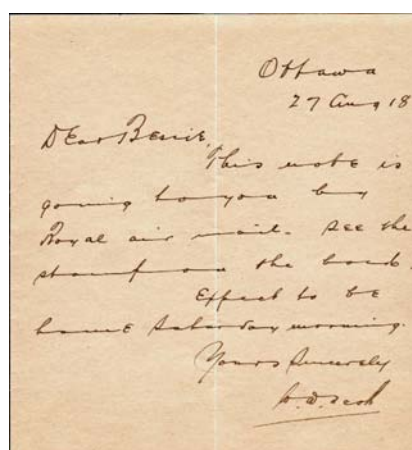 Ottawa
27 Aug 18
Dear Bessie,
This note is
going to you by
Royal air mail. See the
stamp on the back.
Expect to be
home Saturday morning.
Yours Sincerely